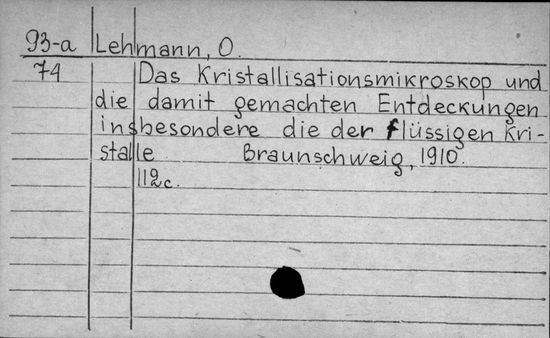 93-a Lehmann, O.
74 Das Kristallisationsmikroskop und
die damit gemachten Entdeckungen
insbesondere die der flüssigen Kri-
stalle Braunschweig, 1910.
112c.